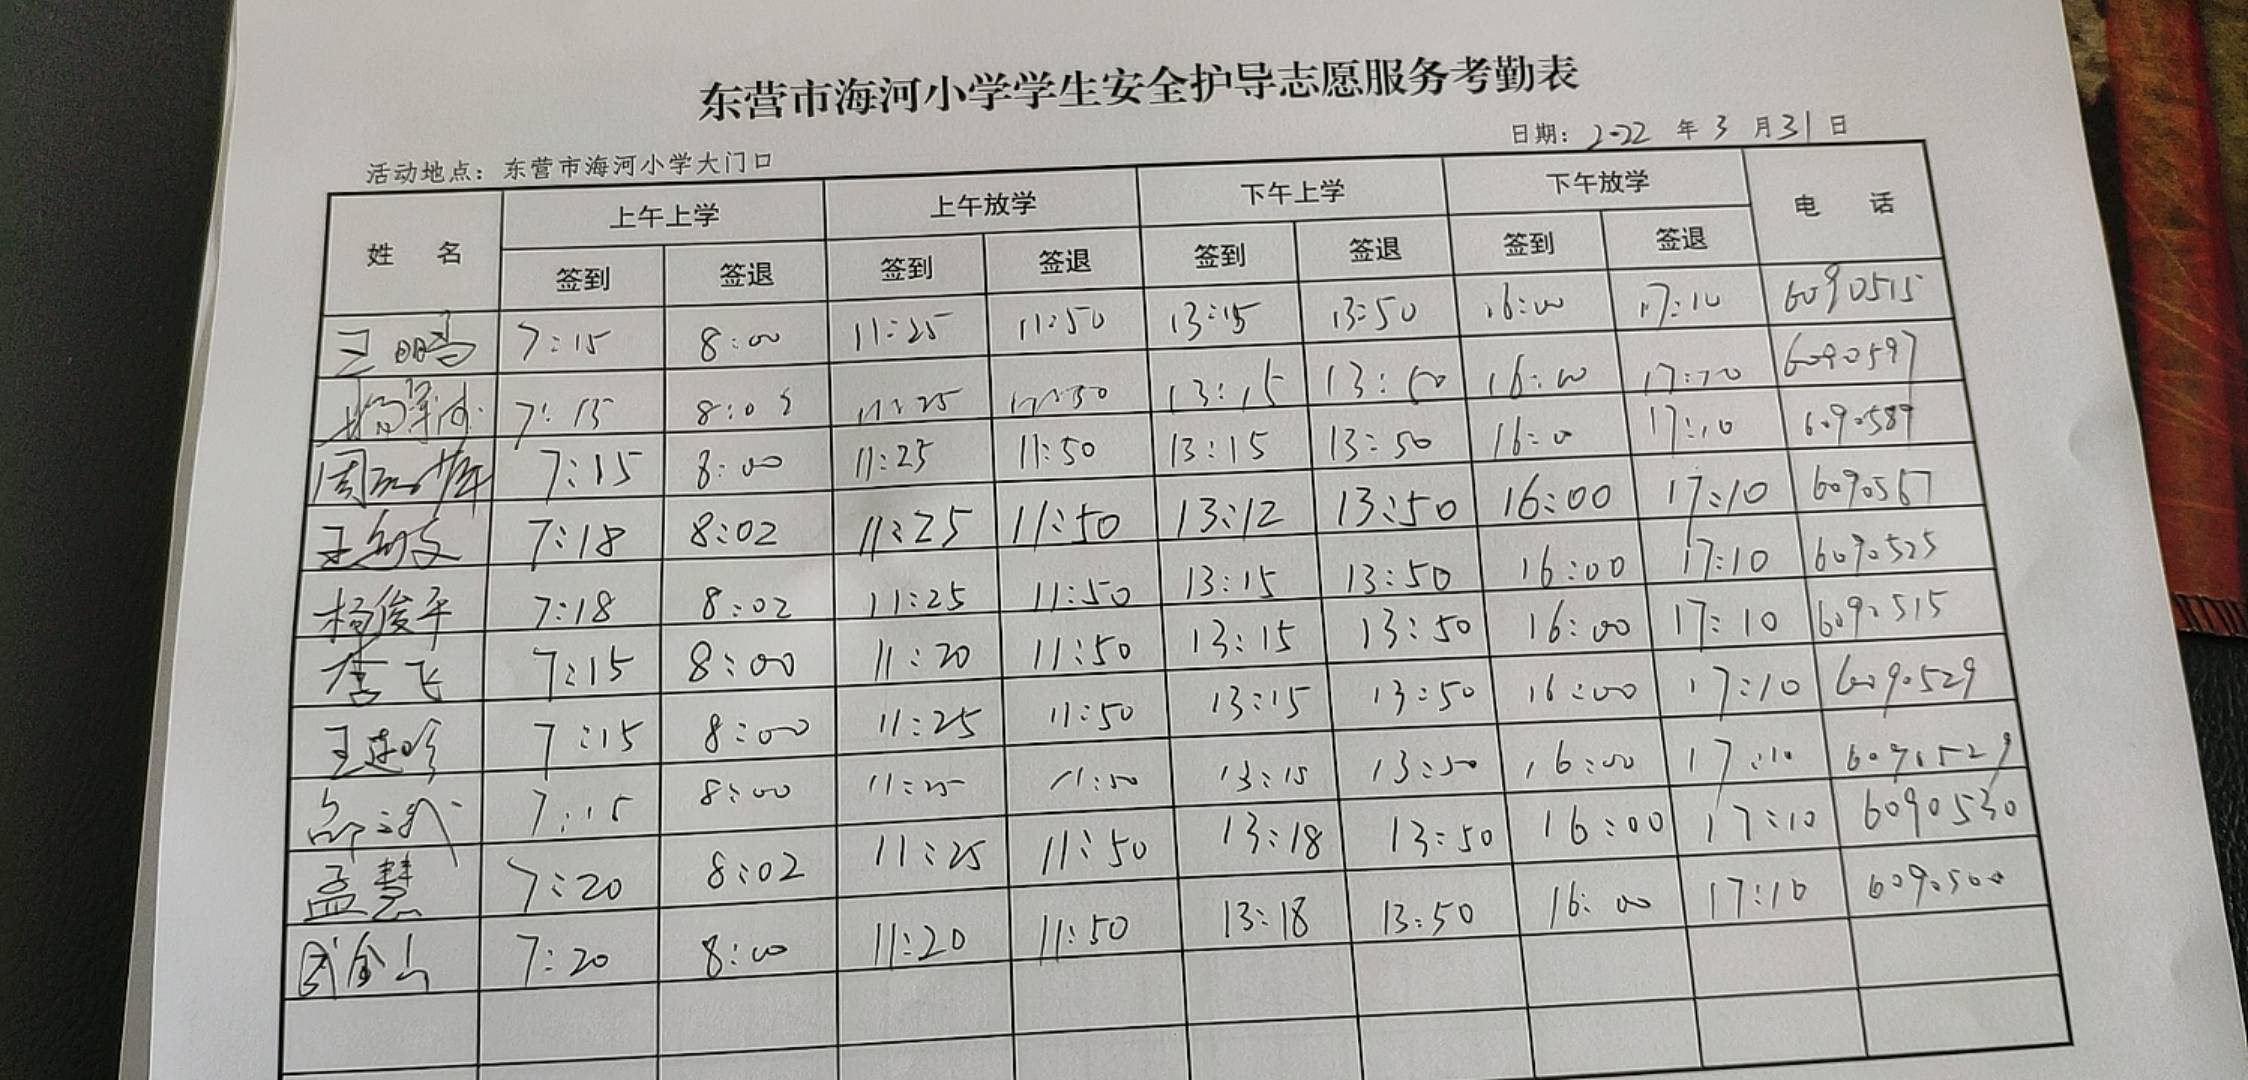 东营市海河小学学生安全护导志愿服务考勤表
日期: 2022 年 3 月 31 日
活动地点: 东营市海河小学大门口
姓 名 上午上学 上午放学 下午上学 下午放学 电 话
签到 签退 签到 签退 签到 签退 签到 签退
7:15 8:00 11:25 11:50 13:15 13:50 16:00 17:10 6090515
7:15 8:05 11:25 11:50 13:15 13:50 16:00 6090597
7:15 8:00 11:25 11:50 13:15 13:50 16:00 17:10 6090589
7:18 8:02 11:25 11:50 13:12 13:50 16:00 17:10 6090567
杨俊平 7:18 8:02 11:25 11:50 13:15 13:50 16:00 17:10 6090525
李飞 7:15 8:00 11:20 11:50 13:15 13:50 16:00 17:10 6090515
7:15 8:00 11:25 11:50 13:15 13:50 16:00 17:10 6090529
7:15 8:00 11:25 11:50 13:15 13:50 16:00 17:10 6090529
孟慧 7:20 8:02 11:25 11:50 13:18 13:50 16:00 17:10 6090530
武金山 7:20 8:00 11:20 11:50 13:18 13:50 16:00 17:10 6090500